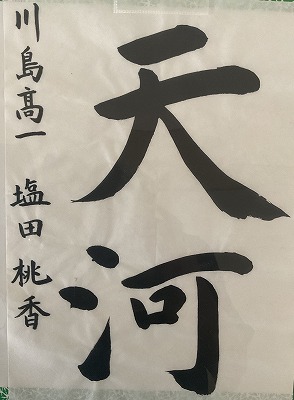 天河
川島高一 塩田桃香